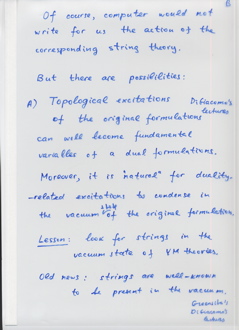 Of course, computer would not
write for us the action of the
corresponding string theory.
But there are possibilities:
A) Topological excitations
DiGiacomo's
lectures
of the original formulations
can will become fundamental
variables of a dual formulations.
Moreover, it is "natural" for duality-
-related excitations to condense in
the vacuum state of the original formulation.
Lesson: look for strings in the
vacuum state of YM theories.
Old news: strings are well-known
to be present in the vacuum.
Greensite's
DiGiacomo's
lectures